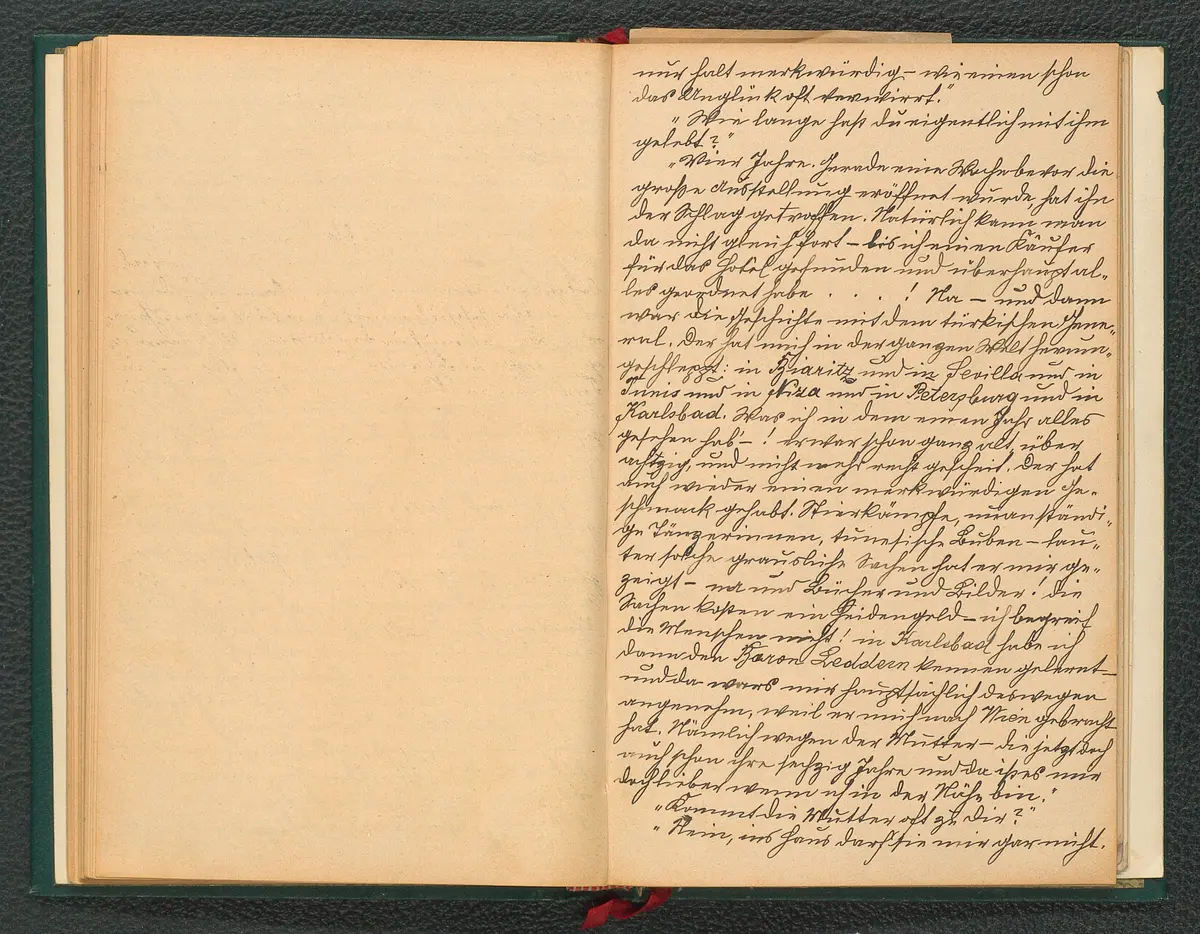 nur halt merkwürdig – wie einen schon
das Unglück oft verwirrt."
„Wie lange hast du eigentlich mit ihm
gelebt?"
„Vier Jahre. Gerade eine Woche bevor die
große Ausstellung eröffnet wurde, hat ihn
der Schlag getroffen. Natürlich kann man
da nicht gleich fort – bis ich einen Käufer
für das Hotel gefunden und überhaupt al-
les geordnet habe . . . . ! Na – und dann
war die Geschichte mit dem türkischen Gene-
ral. Der hat mich in der ganzen Welt herum-
geschleppt: in Biaritz und in Sevilla und in
Tunis und in Niza und in Petersburg und in
Karlsbad. Was ich in dem einen Jahr alles
gesehen hab' – ! er war schon ganz alt, über
achtzig, und nicht mehr recht gescheit. Der hat
auch wieder einen merkwürdigen Ge-
schmack gehabt. Stierkämpfe, unanständi-
ge Tänzerinnen, tunesische Buben – lau-
ter solche grausliche Sachen hat er mir ge-
zeigt – na und Bücher und Bilder! die
Sachen kosten ein Heidengeld – ich begreif
die Menschen nicht! in Karlsbad habe ich
dann den Baron Leddern kennen gelernt –
und da wars mir hauptsächlich deswegen
angenehm, weil er mich nach Wien gebracht
hat. Nämlich wegen der Mutter – die jetzt doch
auch schon ihre sechzig Jahre und da ist es mir
doch lieber wenn ich in der Nähe bin."
„Kommt die Mutter oft zu dir?"
„Nein, ins Haus darf sie mir gar nicht.